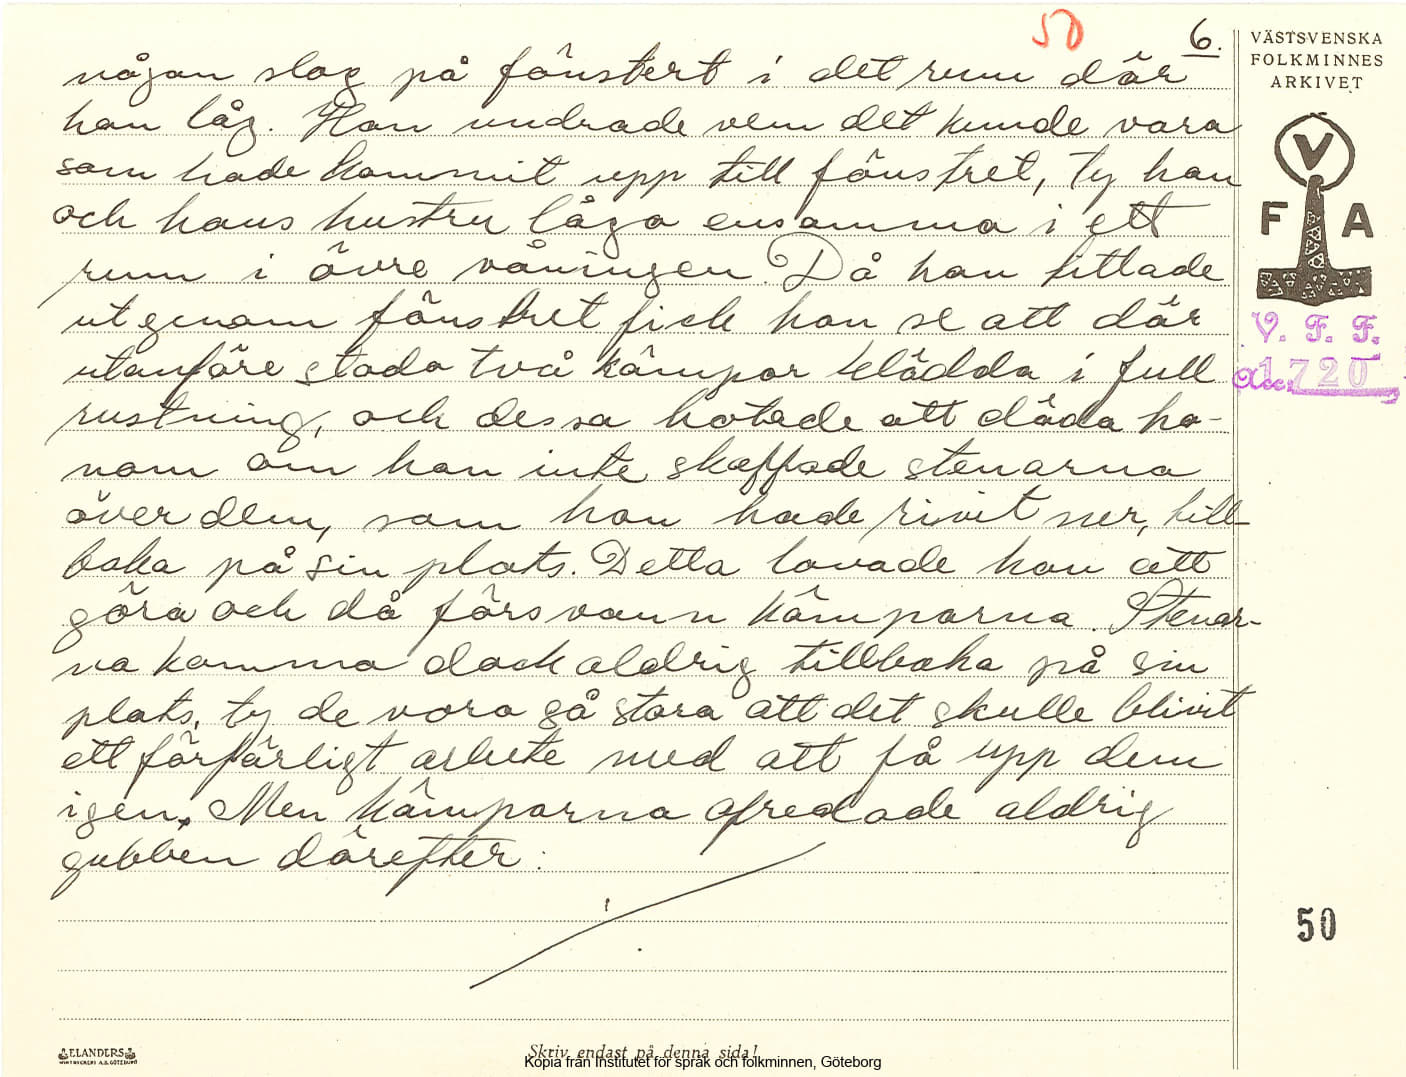 50
6.
VÄSTSVENSKA
FOLKMINNES
ARKIVET
V
F A
V. F. F.
Acc. 1720
någon slog på fönstert i det rum där
han låg. Han undrade vem det kunde vara
som hade kommit upp till fönstret, ty han
och hans hustru lågo ensamma i ett
rum i övre våningen. Då han tittade
ut genom fönstret fick han se att där
utanföre stodo två kämpar klädda i full
rustning, och dessa hotade att döda ho-
nom om han inte skaffade stenarna
över dem, som han hade rivit ner, till-
baka på sin plats. Detta lovade han att
göra och då försvann kämparna. Stenar-
na kommo dock aldrig tillbaka på sin
plats, ty de voro så stora att det skulle blivit
ett förfärligt arbete med att få upp dem
igen. Men kämparna ofredade aldrig
gubben därefter.
50
ELANDERS
Skriv endast på denna sida!
Kopia från Institutet för språk och folkminnen, Göteborg